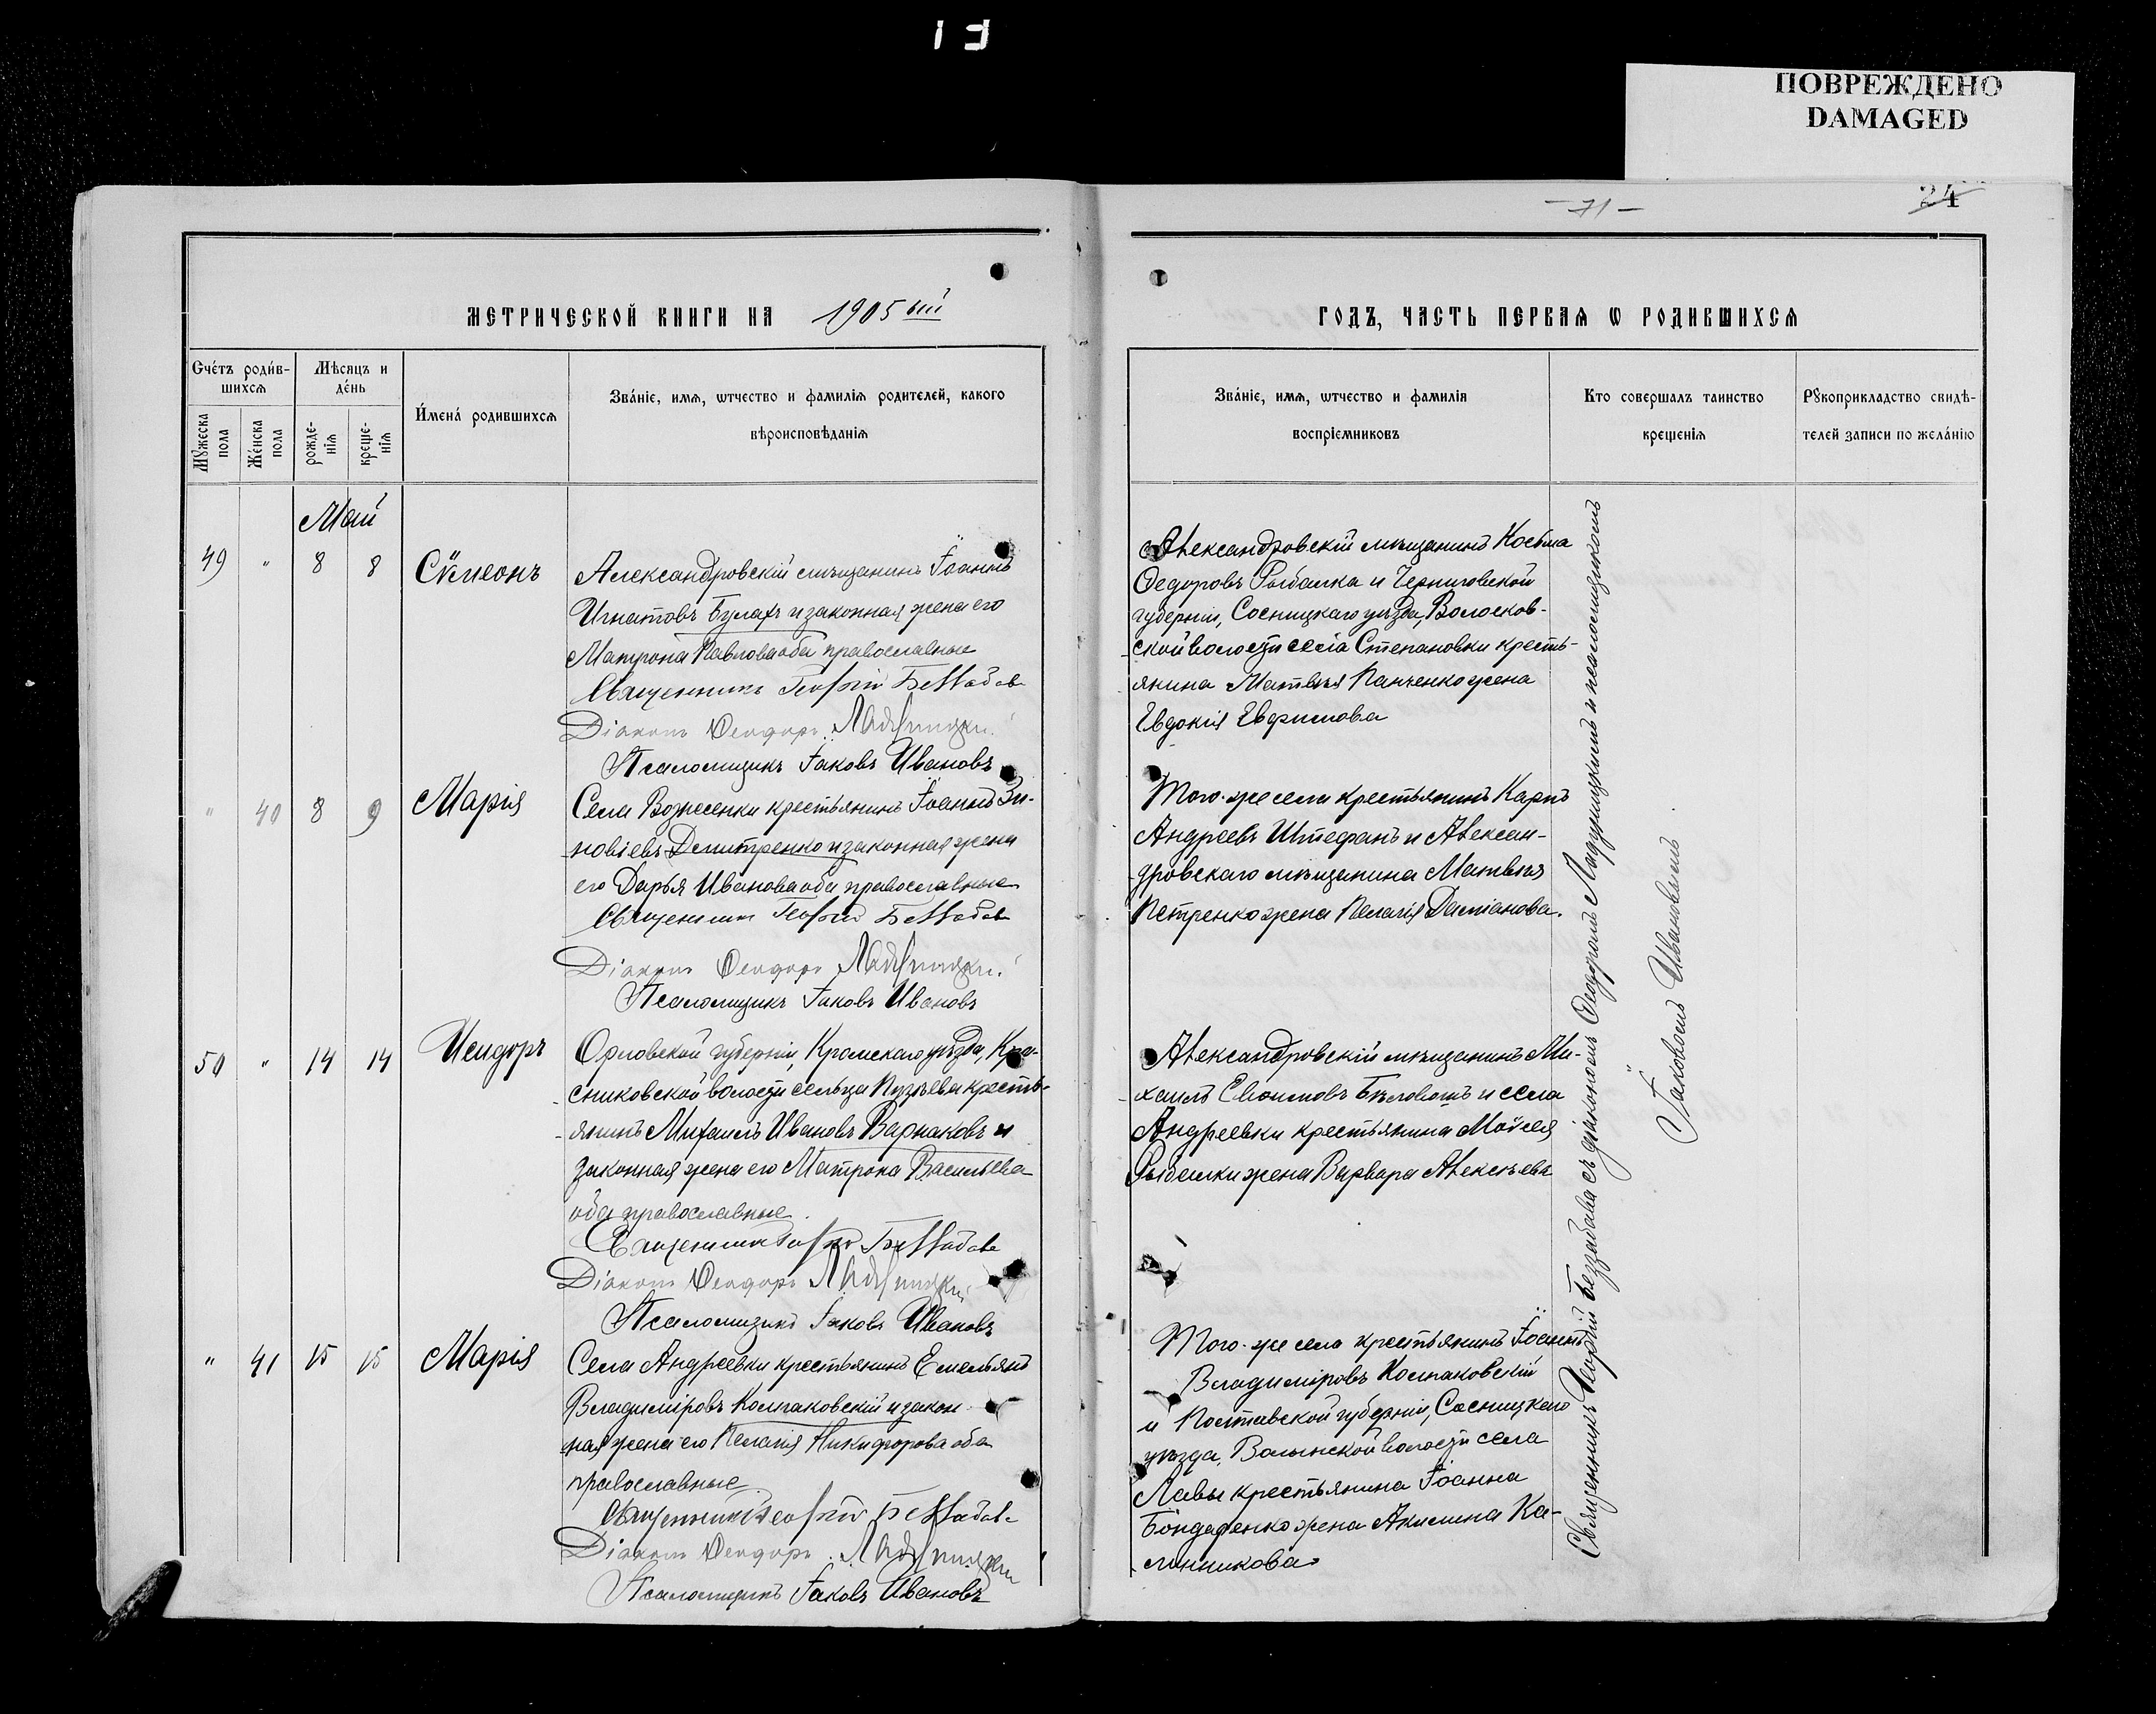 13
ПОВРЕЖДЕНО
DAMAGED
— 71 —
24
МЕТРИЧЕСКОЙ КНИГИ НА 1905 ый
ГОДЪ, ЧАСТЬ ПЕРВАѦ Ѡ РОДИВШИХСѦ
Счéтъ роди́в-
шихсѧ
Мѣсѧцъ и
де́нь
Мꙋжеска
пола
Же́нска
пола
рожде-
нїѧ
креще-
нїѧ
И́мена́ родившихсѧ
Зва́нїе, имѧ, ѿчество и фамилїѧ родителей, какого
вѣроисповѣданїѧ
Зва́нїе, имѧ, ѿчество и фамилїѧ
воспрїемниковъ
Кто совершалъ таинство
крещенїѧ
Рꙋкоприкладство свидѣ-
телей записи по жела́нїю
Май
49 " 8 8 Сѷмеонъ
Александровскій мѣщанинъ Іоаннъ
Игнатовъ Булахъ и законная жена его
Матрона Павлова оба православные
Священникъ Георгій Беззабава
Діаконъ Ѳеодоръ Ладухицкій
Псаломщикъ Іаковъ Ивановъ
Александровскій мѣщанинъ Косьма
Ѳедоровъ Рыбалка и Черниговской
губерніи, Сосницкаго уѣзда, Волосков-
ской волости села Степановки кресть-
янина Матвѣя Панченко жена
Евдокія Евфимова
" 40 8 9 Марія
Села Вознесенки крестьянинъ Іоаннъ Зи-
новіевъ Дмитренко и законная жена
его Дарья Иванова оба православные
Священникъ Георгій Беззабава
Діаконъ Ѳеодоръ Ладухицкій
Псаломщикъ Іаковъ Ивановъ
Того-же села крестьянинъ Карпъ
Андреевъ Штефанъ и Алексан-
дровскаго мѣщанина Матвѣя
Петренко жена Пелагія Даміанова.
50 " 14 14 Исидоръ
Орловской губерніи, Кромскаго уѣзда, Кра-
сниковской волости сельца Пузѣева кресть-
янинъ Михаилъ Ивановъ Варнаковъ и
законная жена его Матрона Васильева
оба православные.
Священникъ Георгій Беззабава
Діаконъ Ѳеодоръ Ладухицкій
Псаломщикъ Іаковъ Ивановъ
Александровскій мѣщанинъ Ми-
хаилъ Евѳимовъ Бѣловолъ и села
Андреевки крестьянина Моѵсея
Рыбалки жена Варвара Алексѣева
" 41 15 15 Марія
Села Андреевки крестьянинъ Емельянъ
Владиміровъ Колпаковскій и закон-
ная жена его Пелагія Никифорова оба
православные.
Священникъ Георгій Беззабава
Діаконъ Ѳеодоръ Ладухицкій
Псаломщикъ Іаковъ Ивановъ
Того-же села крестьянинъ Іоаннъ
Владиміровъ Колпаковскій
и Полтавской губерніи, Сосницкаго
уѣзда, Волынской волости села
Лавы крестьянина Іоанна
Бондаренко жена Акилина Ка-
линникова
Священникъ Георгій Беззабава съ діакономъ Ѳеодоромъ Ладухицкимъ и псаломщикомъ
Іаковомъ Ивановымъ.